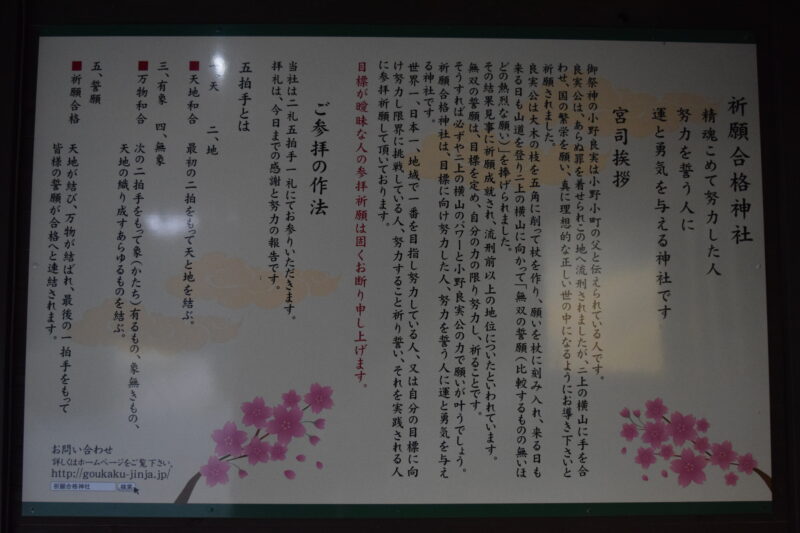 祈願合格神社
精魂こめて努力した人
努力を誓う人に
運と勇気を与える神社です
宮司挨拶
御祭神の小野良実は小野小町の父と伝えられている人です。
良実公は、あらぬ罪を着せられこの地へ流刑されましたが、二上の横山に手を合
わせ、国の繁栄を願い、真に理想的な正しい世の中になるようにお導き下さいと
祈願されました。
良実公は大木の枝を五角に削って杖を作り、願いを杖に刻み入れ、来る日も
来る日も山道を登り二上の横山に向かって「無双の誓願(比較するものの無いほ
どの熱烈な願い)」を捧げられました。
その結果見事に祈願成就され、流刑前以上の地位についたといわれています。
無双の誓願は、目標を定め、自分の力の限り努力し、祈ることです。
そうすれば必ずや二上の横山のパワーと小野良実公の力で願いが叶うでしょう。
祈願合格神社は、目標に向け努力した人、努力を誓う人に運と勇気を与え
る神社です。
世界一、日本一、地域で一番を目指し努力している人、又は自分の目標に向
け努力し限界に挑戦している人、努力すること祈り誓い、それを実践される人
に参拝祈願して頂いております。
目標が曖昧な人の参拝祈願は固くお断り申し上げます。
ご参拝の作法
当社は二礼五拍手一礼にてお参りいただきます。
拝礼は、今日までの感謝と努力の報告です。
五拍手とは
一、天 二、地
■天地和合 最初の二拍をもって天と地を結ぶ。
三、有象 四、無象
■万物和合 次の二拍手をもって象(かたち)有るもの、象無きもの、
天地の織り成すあらゆるものを結ぶ。
五、誓願
■祈願合格 天地が結び、万物が結ばれ、最後の一拍手をもって
皆様の誓願が合格へと連結されます。
お問い合わせ
詳しくはホームページをご覧下さい。
http://goukaku-jinja.jp/
祈願合格神社 検索